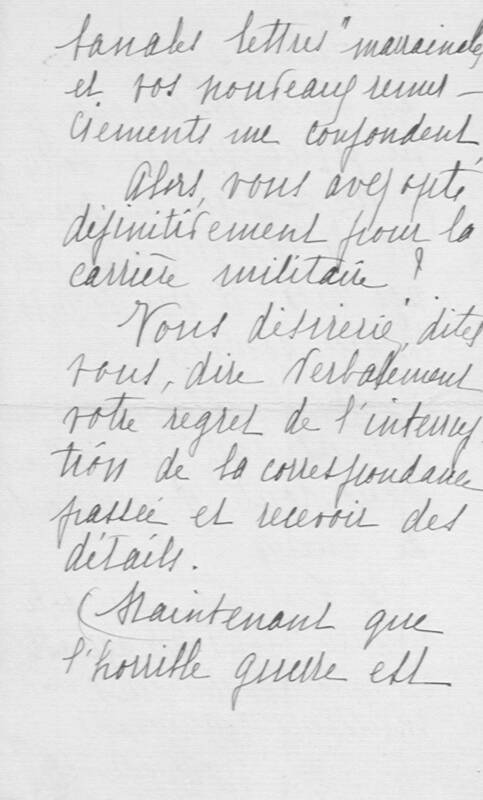 banales lettres "marraine
et vos nouveaux remer-
ciements me confondent,
Alors, vous avez opté
définitivement pour la
carrière militaire ?
Vous désireriez, dites
vous, dire verbalement
votre regret de l'interrup
tion de la correspondance
passée et recevoir des
détails.
Maintenant que
l'horrible guerre est